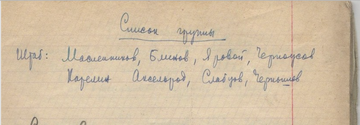 Список группы
Штаб: Масленников, Блинов, Яровой, Черноусов
Карелин Аксельрод, Слабцов, Чернышов